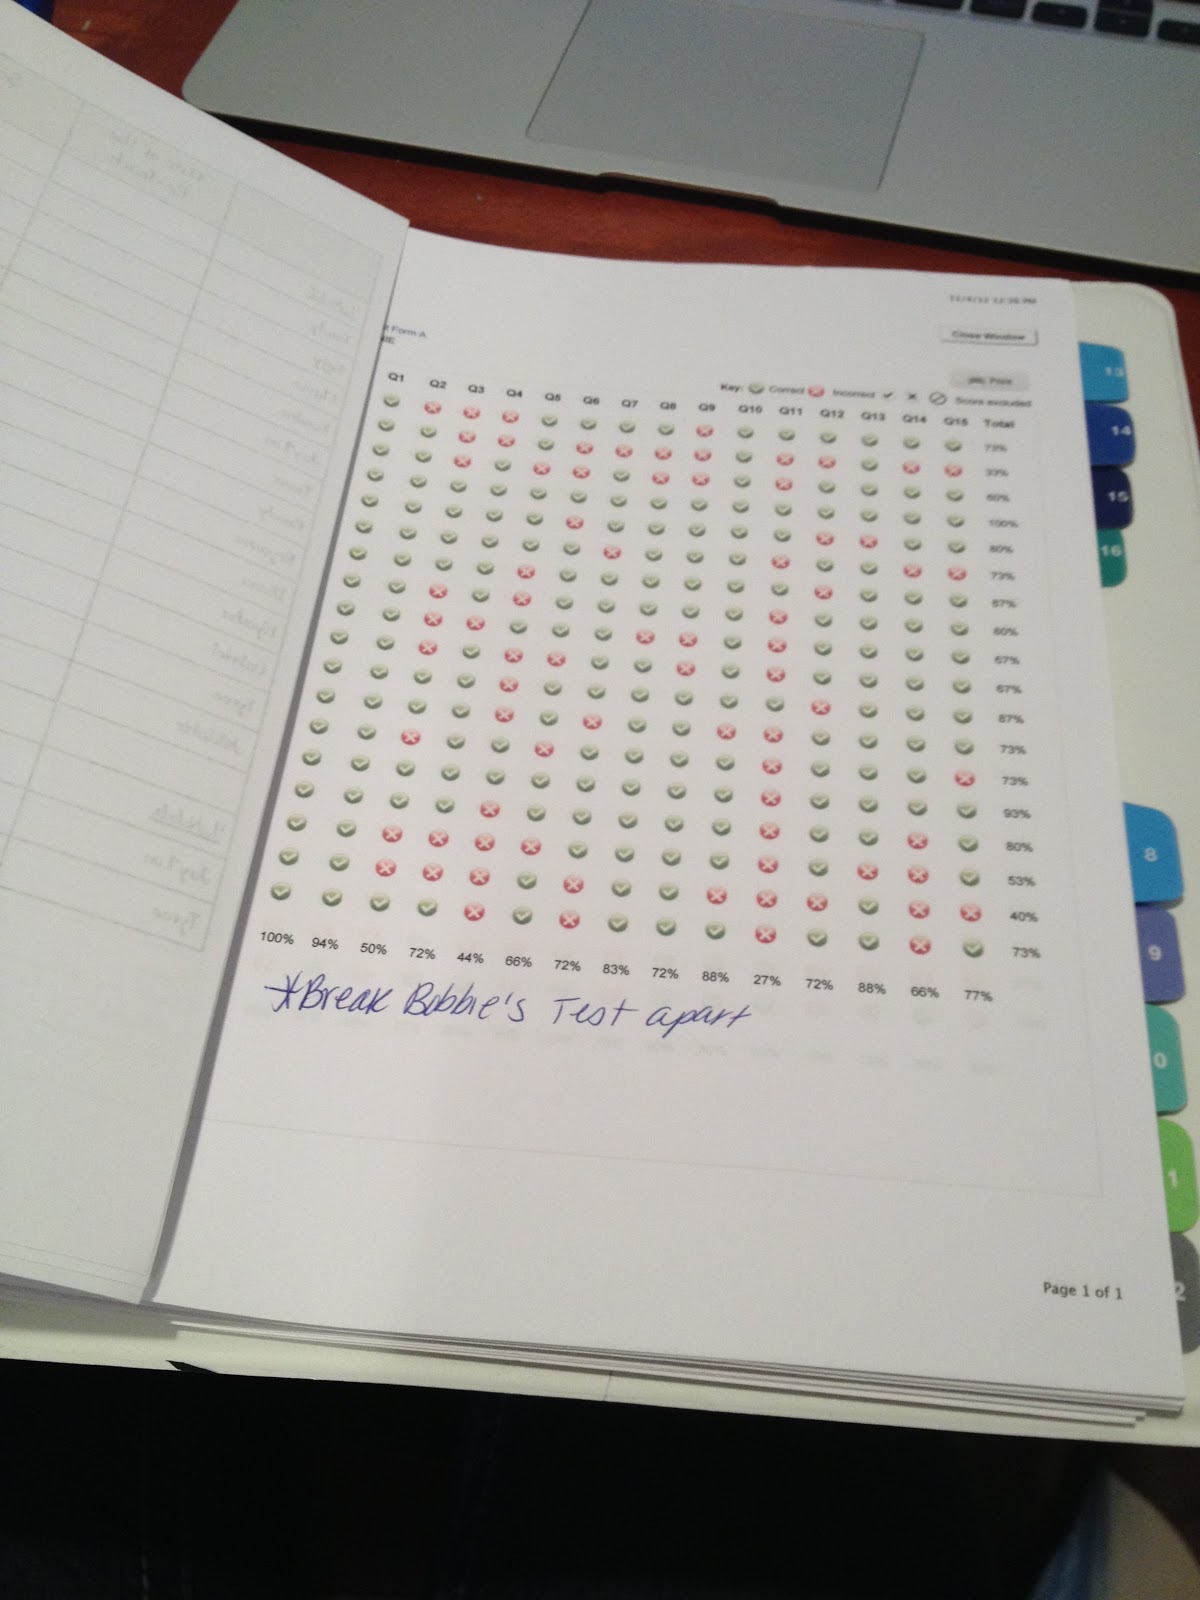 Form A
Close Window
Print
Key: Correct Incorrect Score excluded
Q1 Q2 Q3 Q4 Q5 Q6 Q7 Q8 Q9 Q10 Q11 Q12 Q13 Q14 Q15 Total
73%
33%
60%
100%
80%
73%
87%
80%
67%
67%
87%
73%
73%
93%
80%
53%
40%
73%
100% 94% 50% 72% 44% 66% 72% 83% 72% 88% 27% 72% 88% 66% 77%
*Break Bobbie's Test apart
Page 1 of 1
13
14
15
16
8
9
0
1
2